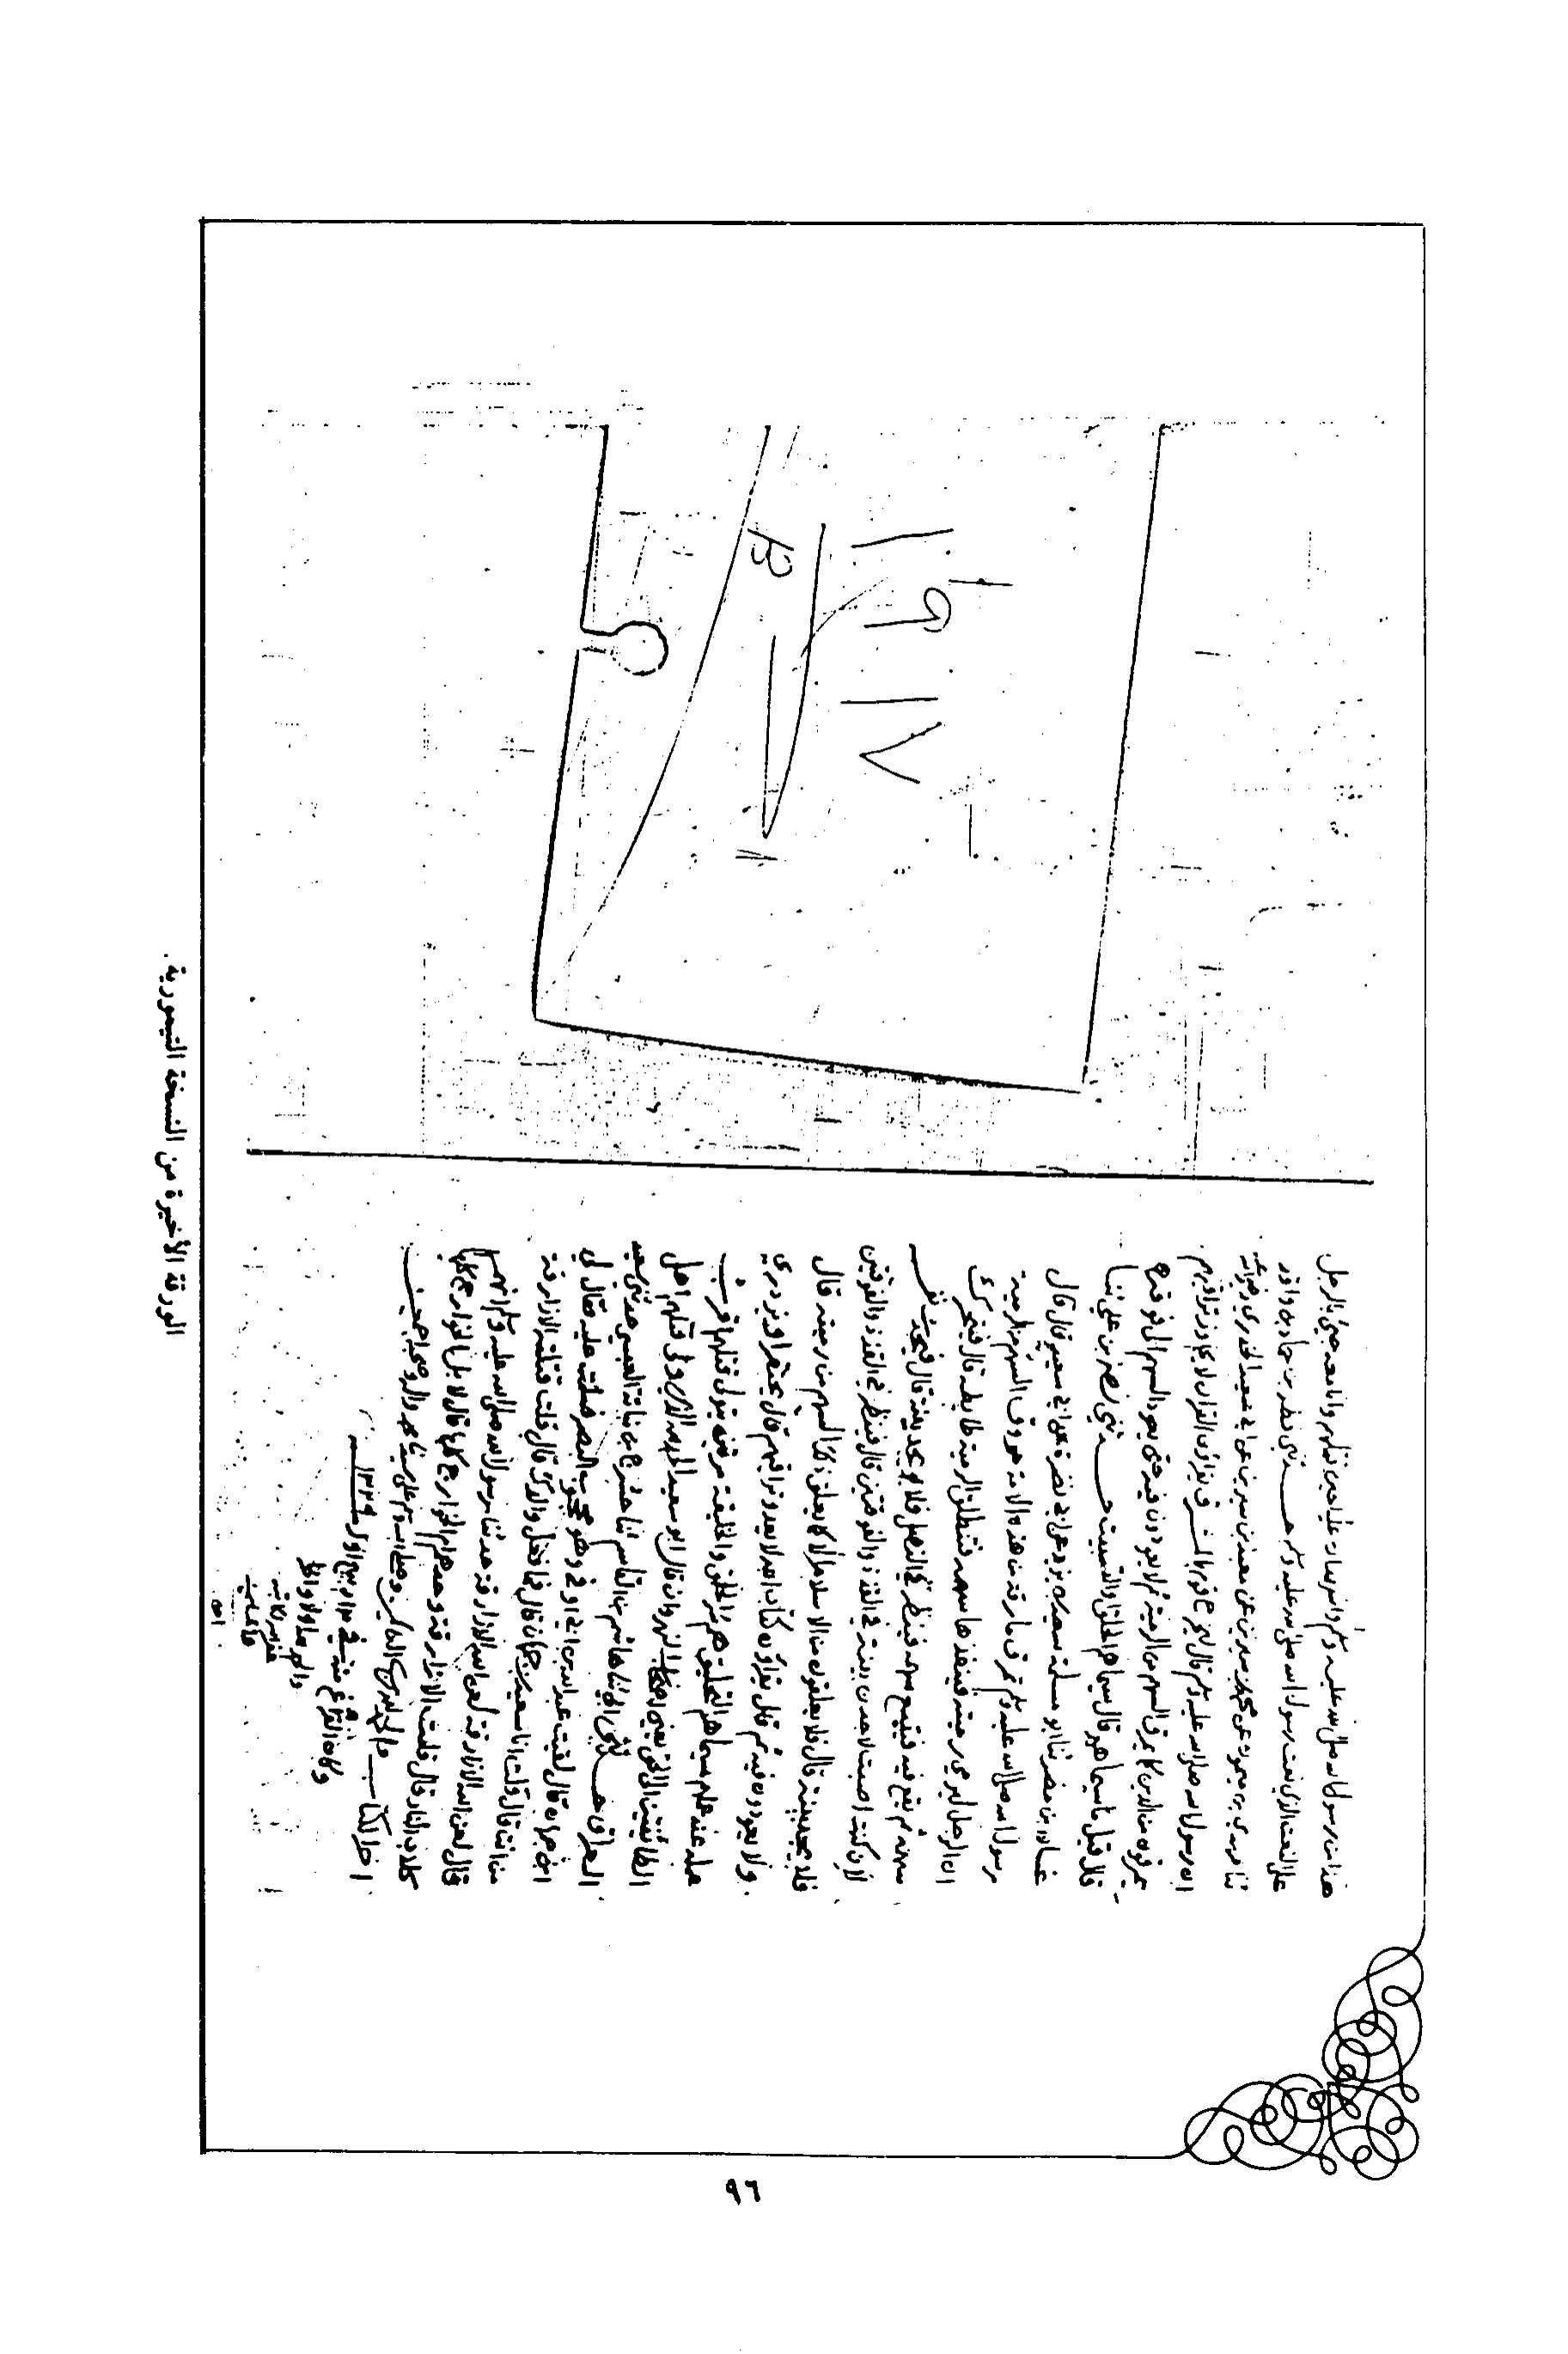 هذا من رسول الله صلى الله عليه وسلم وانه سار علي حين قتلهم وانا معه حين جيء بالرجل
على النعت الذي نعت رسول الله صلى الله عليه وسلم حدثني قطر بن حماد بن واقد
ثنا مهدي بن ميمون عن محمد بن سيرين عن معبد بن سيرين عن ابي سعيد الخدري رضي الله عنه
ان رسول الله صلى الله عليه وسلم قال يخرج قوم بالمشرق يقرأون القرآن لا يجاوز تراقيهم
يمرقون من الدين كما يمرق السهم من الرمية ثم لا يعودون فيه حتى يعود السهم الى فوقه
قال قيل ما سيماهم قال سيماهم الحلق والتسبيت حدثني نصر بن علي ثنا
غسان بن مضر ثنا ابو مسلمة سعيد بن يزيد عن ابي نضرة عن ابي سعيد قال قال
رسول الله صلى الله عليه وسلم تمرق مارقة من هذه الامة مروق السهم من الرمية
ان الرجل ليرمي رميته فينفذها سهمه فتنطلق الرمية
سهمه ثم يقع فيه فيتبع سهمه فينظر في النصل فلا يرى
لان كنت اصبت لاجدن بينة في القذذ والفوقتين قال فينظر في القذذ والفوقتين
فلا يجد بينة قال فلا يعلقون من الاسلام الا كما يعلق ذلك السهم من رميته قال
ولا يعودون فيه ثم قال يقرأون كتاب الله لا يعدو تراقيهم قال يحتقر او يزدري
عمله عند عملهم سيماهم التحليق هم شر الخلق والخليقة
الطائفتين الى الحق يعني اصحاب النهروان قال ابو سعيد الحمد لله الذي ولى قتلهم اهل
العراق حدثني ابي ثنا هاشم بن القاسم ثنا حشرج بن نباتة العبسي حدثني سعيد
ابن جمهان قال لقيت عبد الله بن ابي اوفى وهو محجوب البصر فسلمت عليه فقال لي
من انت قال قلت انا سعيد بن جمهان قال ما فعل والدك قال قلت قتلته الازارقة
قال لعن الله الازارقة لعن الله الازارقة حدثنا رسول الله صلى الله عليه وسلم انهم
كلاب النار قال قلت الازارقة وحدهم ام الخوارج كلها قال لا بل الخوارج كلها
اخر الكتاب والحمد لله رب العالمين وصلى الله وسلم على سيدنا محمد وآله وصحبه اجمعين
وكان الفراغ منه في ربيع اول سنة ١٣٢٩
١٩١٧
الورقة الأخيرة من النسخة التيمورية.
٩٦